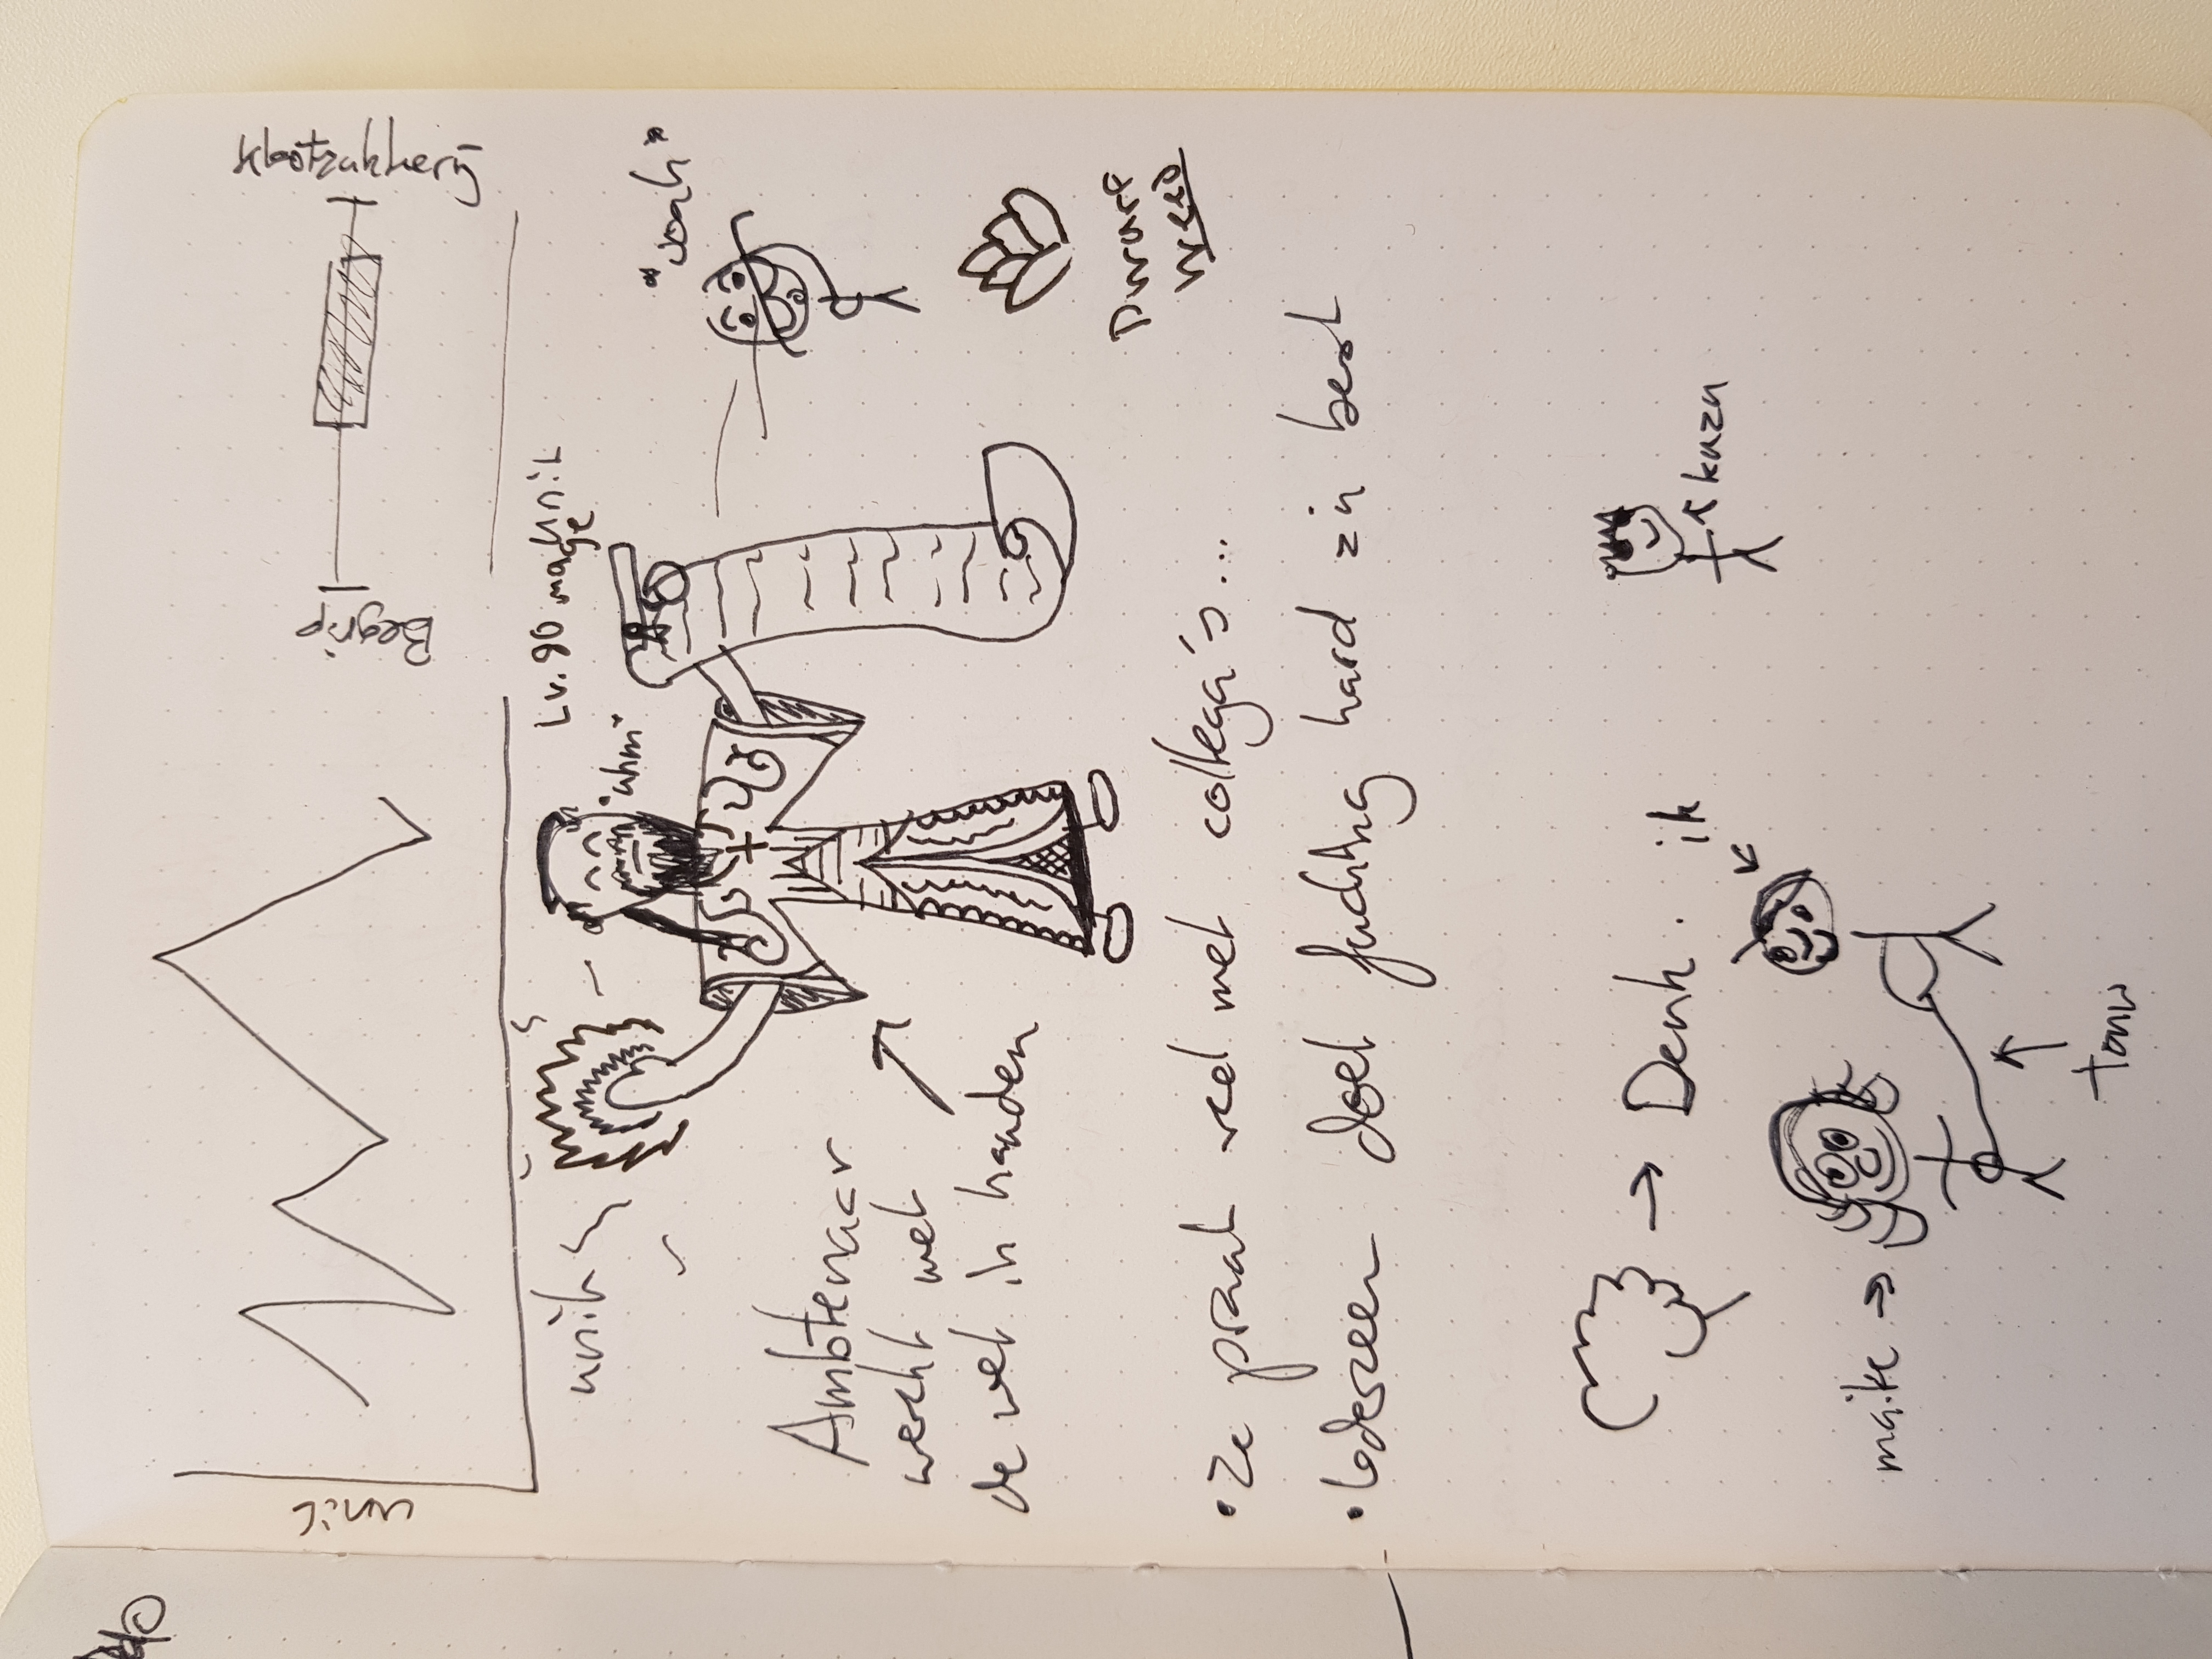 Begrip
klootzakkerij
Lv. 90 mage
"uhm"
"woah"
Ambtenaar
werkt met
de wet in handen
Dwarf
Weed
• Ze praat veel met collega's...
• Iedereen doet fucking hard zn best
→ Denk.
ik
kazu
maike →
touw